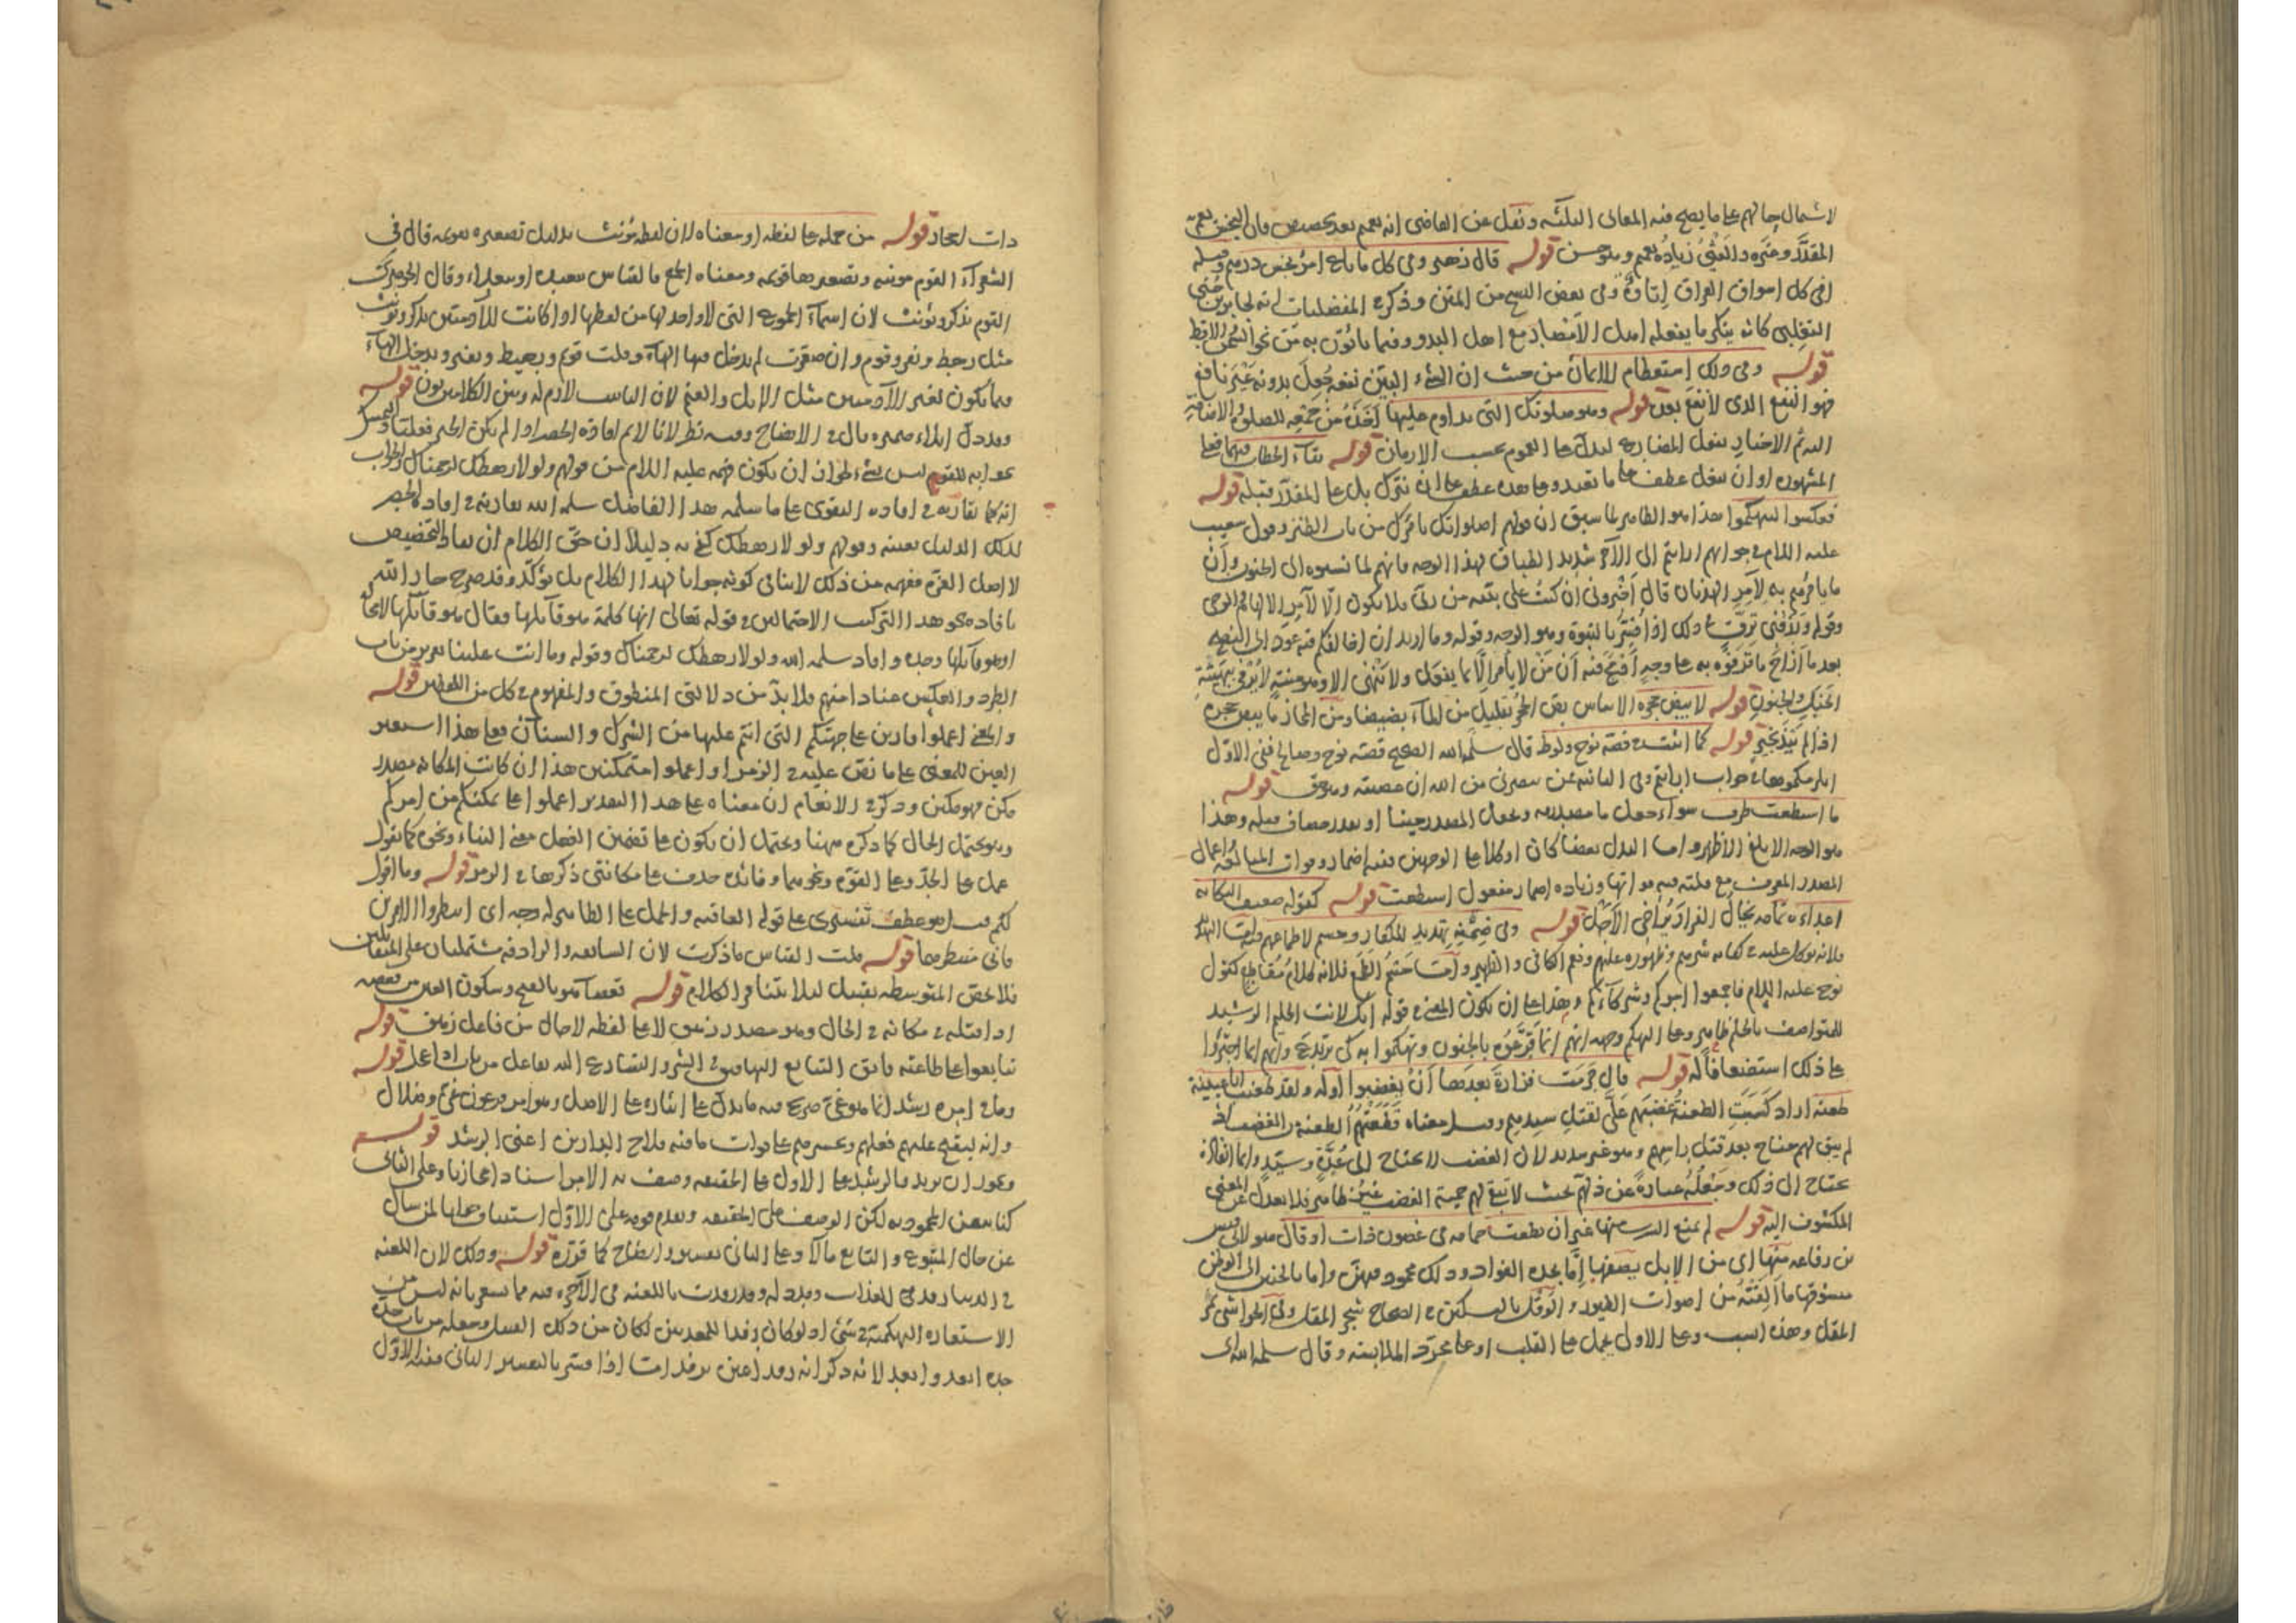 لاشتمال حالهم على ما يصح فيه المعاني الثلثة ونقل عن القاضي انه تعميم بعد تخصيص فان البخس يعم
المقدار وغيره والعثي زيادة تعميم وهو حسن قوله قال زهير وفي كل ما باع امرؤ بخس درهم وقبله
افي كل اسواق العراق اتاوة وفي بعض النسخ من المتن وذكر في المفضليات انه لجابر بن حني
التغلبي كانه ينكر ما يفعله اهل الامصار مع اهل البدو وفيما يأتون به من نحو السمن والاقط
قوله وفي ذلك استعظام للايمان من حيث ان الشيء البين نفعه جعل بدونه غير نافع
فهو النفع الذي لا نفع بعده قوله وهو صلوتك التي تداوم عليها اخذه من جمعه للصلوة والاضافة
اليه ثم الاخبار بفعل المضارع ليدل على العموم بحسب الازمان قوله بتاء الخطاب فيهما فعلى
المشهورة او ان نفعل عطف على ما نعبد وعلى هذه عطف على ان نترك بل على المقدر قبله قوله
فعكسوا ليتهكموا هذا هو الظاهر لما سبق ان قولهم اصلواتك تأمرك من باب الطنز وقول شعيب
عليه السلام في جوابهم ارايتم الى الآخر شديد الطباق لهذا الوجه فانهم لما نسبوه الى الجنون وان
ما يأمرهم به لآمر الهذيان قال اخبروني ان كنت على بينة من ربي فلا يكون الآمر الا الهام الوحي
وقوله ورزقني ترق على ذلك اذا فسر بالنبوة وهو الوجه وقوله وما اريد ان اخالفكم فيه عود الى النصح
بعد ما ازاح ما تفوه به على وجه افتح فيه ان من لا يأمر الا بما يفعل ولا ينهى الا وهو منته لا يرمى بهيئة
الخبل والجنون قوله لا يبض حجره الاساس بض الحجر بقليل من الماء بضيضا ومن المجاز ما يبض حجره
اذا لم يند بخير قوله كما اثبت في قصة نوح ولوط قال سلمه الله الصحيح قصة نوح وصالح ففي الاول
انلزمكموها في جواب ارايتم وفي الثانية فمن ينصرني من الله ان عصيته وهو حق قوله
ما استطعت ظرف سواء جعل ما مصدرية وتجعل المصدر حينا او تقدر مضاف قبله وهذا
هو الوجه الابلغ الاظهر واما البدل بعضا كان او كلا على الوجهين ففيه اضمار وفوات المبالغة واعمال
المصدر المعرف مع قلته فيه فواتها وزيادة اضمار مفعول استطعت قوله كقوله ضعيف النكاية
اعداءه تمامه يخال الفرار يراخي الاجل قوله وفي ضمنه تهديد للكفار وحسم لاطماعهم
فلانه توكل عليه في كفاية شرهم وظهوره عليهم ونعم الكافي والظهير واما حسم الطمع فلانه كلام مقاطع كقول
نوح عليه السلام فاجمعوا امركم وشركاءكم وهذا على ان يكون المعنى في قوله انك لانت الحليم الرشيد
للتواصف بالحلم ظاهر وعلى التهكم وجهه انهم انما قرفوه بالجنون وتهكموا به كي يرتدع وانهم انما اجترؤا
على ذلك استضعافا له قوله قال جرمت فزارة بعدها ان يغضبوا اوله ولقد طعنت ابا عيينة
طعنة اراد كسبت الطعنة غضبهم علي لقتل سيدهم وقيل معناه قطعتهم الطعنة الغضب اذ
لم يبق لهم جناح بعد قتل رأسهم وهو غير سديد لان الغضب لا يحتاج الى عدة وسيد وانما انفاذه
يحتاج الى ذلك وجعله عبارة عن ذلتهم بحيث لا تبقى لهم حمية الغضب غير ظاهر فلا يعدل عن المعنى
المكشوف اليه قوله لم يمنع الشرب منها غير ان نطقت حمامة في غصون ذات اوقال هو لابي قيس
بن رفاعة منها اي من الابل يصفها اما بحدة الفؤاد وذلك محمود فيهن واما بالحنين الى الوطن
مشوقها ما الفته من اصوات الطيور والوقل بالتسكين في الصحاح شجر المقل وفي الحواشي ثمر
المقل وهذه انسب وعلى الاول يحمل على القلب او على مجرد الملابسة وقال سلمه الله اي
ذات اوقال قوله من حمله على لفظه او معناه لان لفظه مؤنث بدليل تصغيره قويمة قال في
الشعراء القوم مؤنثة وتصغيرها قويمة ومعناه الجمع فالقياس ببعيدة او ببعداء وقال الجوهري
القوم يذكر ويؤنث لان اسماء الجموع التي لا واحد لها من لفظها اذا كانت للآدميين يذكر ويؤنث
مثل رهط ونفر وقوم وان صغرت لم يدخل فيها الهاء وقلت قويم ورهيط ونفير ويدخل الهاء
فيما يكون لغير الآدميين مثل الابل والغنم لان التانيث لازم له وبين الكلامين بون قوله
وقد دل ايلاء ضميره قال في الايضاح وفيه نظر لانا لا نم افادة الحصر اذا لم يكن الخبر فعليا
بجوابه للقوم ليس بشيء لجواز ان يكون فهمه عليه السلام من قولهم ولولا رهطك لرجمناك والجواب
انه كما يقاربه في افادة التقوى على ما سلمه هذا الفاضل سلمه الله يقاربه في افادة الحصر
لذلك الدليل بعينه وقولهم ولولا رهطك كفى به دليلا ان حق الكلام ان يفاد التخصيص
لا اصل العز ففهمه من ذلك لا ينافي كونه جوابا لهذا الكلام بل يؤكده وقد صرح جار الله
بافادة نحو هذا التركيب الاحتمالين في قوله تعالى انها كلمة هو قائلها فقال هو قائلها لا محالة
او هو قائلها وحده وافاد سلمه الله ولولا رهطك لرجمناك وقوله وما انت علينا بعزيز من باب
الطرد والعكس عنادا منهم فلا بد من دلالتي المنطوق والمفهوم في كل من اللفظين قوله
والمعنى اعملوا قارين على جهتكم التي انتم عليها من الشرك والشنآن فعلى هذا استعير
العين للمعنى على ما نص عليه في الزمر او اعملوا متمكنين هذا ان كانت المكانة مصدر
مكن فهو مكين وذكر في الانعام ان معناه على هذا التقدير اعملوا على تمكنكم من امركم
وهو يحتمل الحال كما ذكره ههنا ويحتمل ان يكون على تضمين الفعل معنى البناء ونحوه كما تقول
عمل على الجد وعلى القوة ونحوهما وفائدة حذف على مكانتي ذكرها في الزمر قوله وما اقول
لكم هو عطف تفسيري على قوله العاقبة والحمل على الظاهر له وجه اي انتظروا الامرين
فاني منتظرهما قوله قلت القياس ما ذكرت لان السابقة والرادفة مشتملتان على المتقابلين
فلا تخص المتوسطة بقبيل لئلا يتنافر الكلام قوله تعسا هو بالفتح وسكون العين من
او اقبله في مكانه في الحال وهو مصدر زهق لا على لفظه لا حال من فاعل زهق قوله
تتابعوا على طاعته وافق التتابع التهافت في الشر والتسارع اليه تفاعل من قوله
وما في امره رشد انما هو غي صريح فيه ما يدل على ايثاره على الاصل وهو امر فرعون غي وضلال
وانه ليقبح عليهم فعلهم وتحسرهم على فوات ما فيه فلاح الدارين اعني الرشد قوله
ويجوز ان يريد فالرشيد على الاول على الحقيقة وصف به الامر اسنادا مجازيا وعلى الثاني
كنا بمعنى المحمودية لكن الوصف على الحقيقة ويقدم قومه على الاول استيناف جوابا لمن سأل
عن حال المتبوع والتابع مآلا وعلى الثاني تفسير وايضاح كما قرره قوله وذلك لان اللعنة
في الدنيا رفد للعذاب ومدد له وقد رفدت باللعنة في الآخرة فيه مما يشعر بانه ليس من
الاستعارة التهكمية في شيء اذ لو كان رفدا للمعذبين لكان من ذلك القبيل وجعله من باب جد
جده ابعد وابعد لانه ذكر انه رفد اعين برفد اما اذا فسر بالتفسير الثاني ففيه الاول